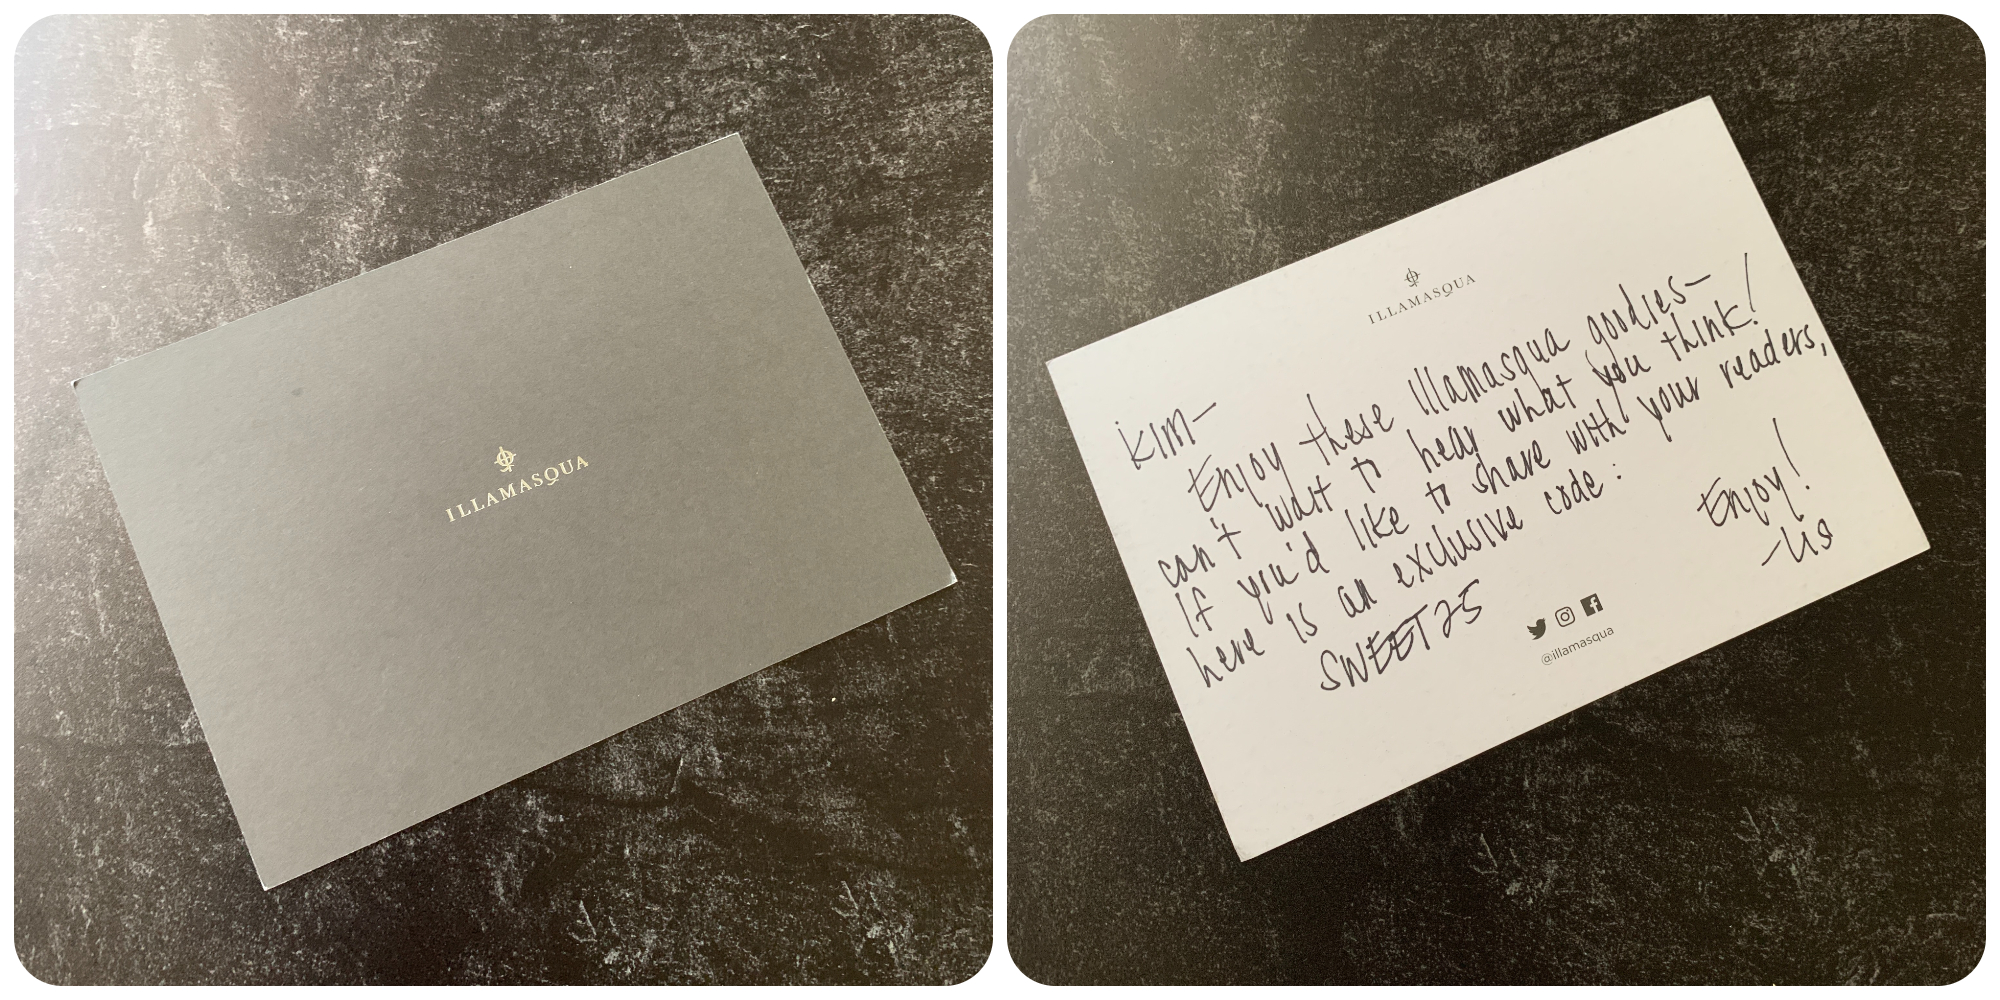 ILLAMASQUA
ILLAMASQUA
Kim-
Enjoy these Illamasqua goodies-
can't wait to hear what you think!
If you'd like to share with your readers,
here is an exclusive code:
SWEET25
Enjoy!
-Lis
@illamasqua